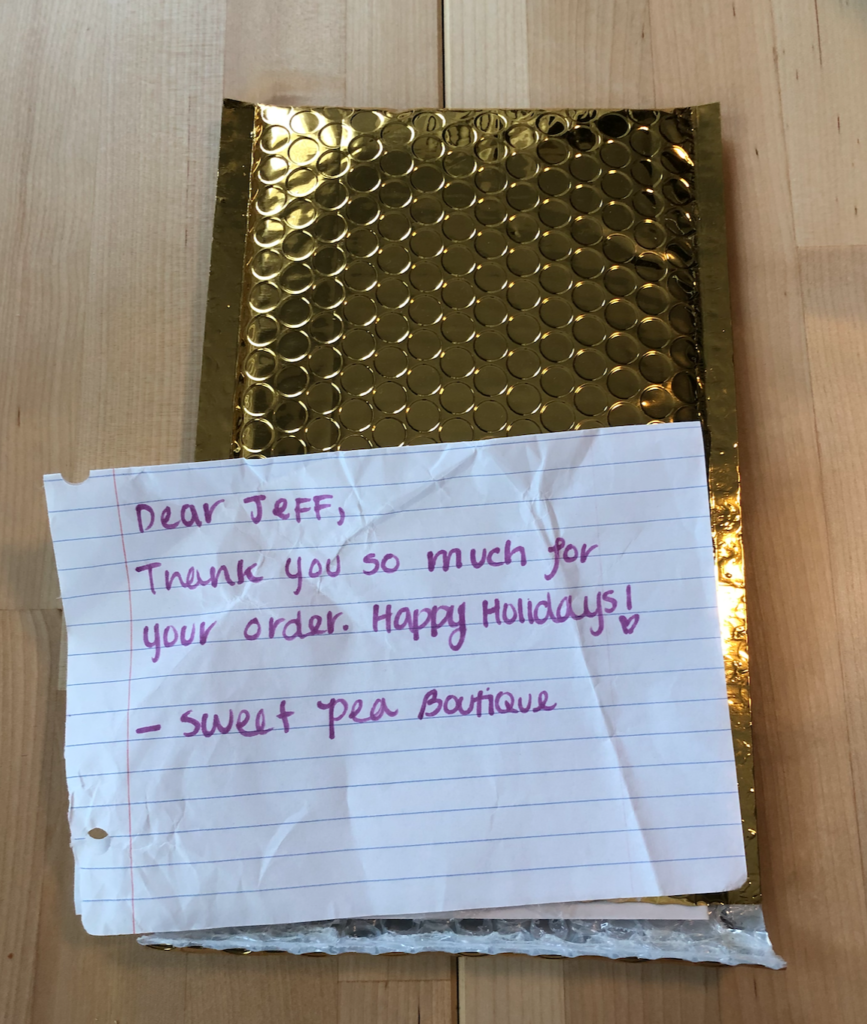 Dear Jeff,
Thank you so much for
your order. Happy Holidays!
- Sweet pea Boutique